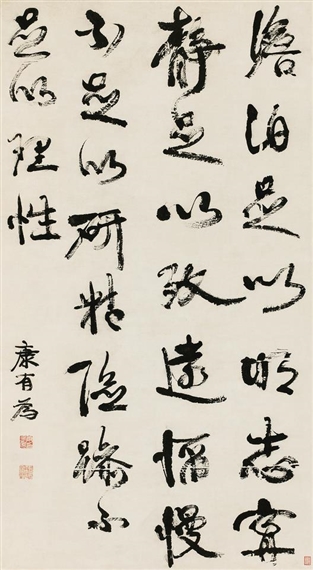 澹泊足以明志寧
靜足以致遠慆慢
不足以研精險躁不
足以理性
康有為